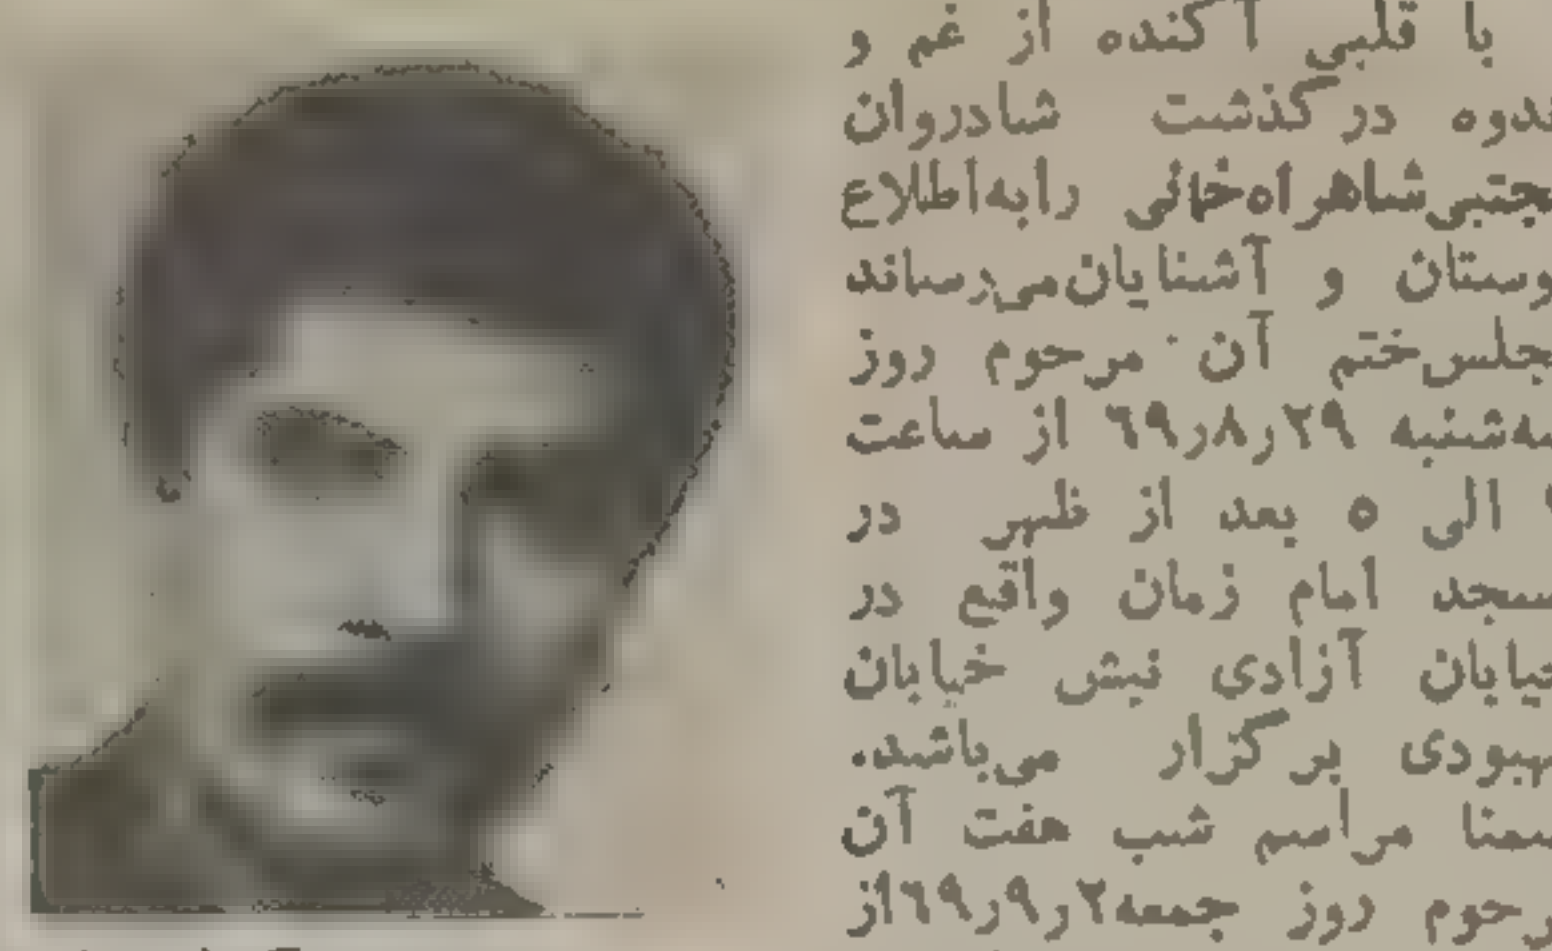 با قلبی آکنده از غم و
ندوه درگذشت شادروان
جتبی شاهراه‌خانی رابه‌اطلاع
وستان و آشنایان‌می‌رساند
جلس‌ختم آن مرحوم روز
سه‌شنبه ۲۹ر۸ر۶۹ از ساعت
الی ۵ بعد از ظهر در
سجد امام زمان واقع در
خیابان آزادی نبش خیابان
بهبودی برگزار می‌باشد.
ضمنا مراسم شب هفت آن
رحوم روز جمعه۲ر۹ر۶۹از